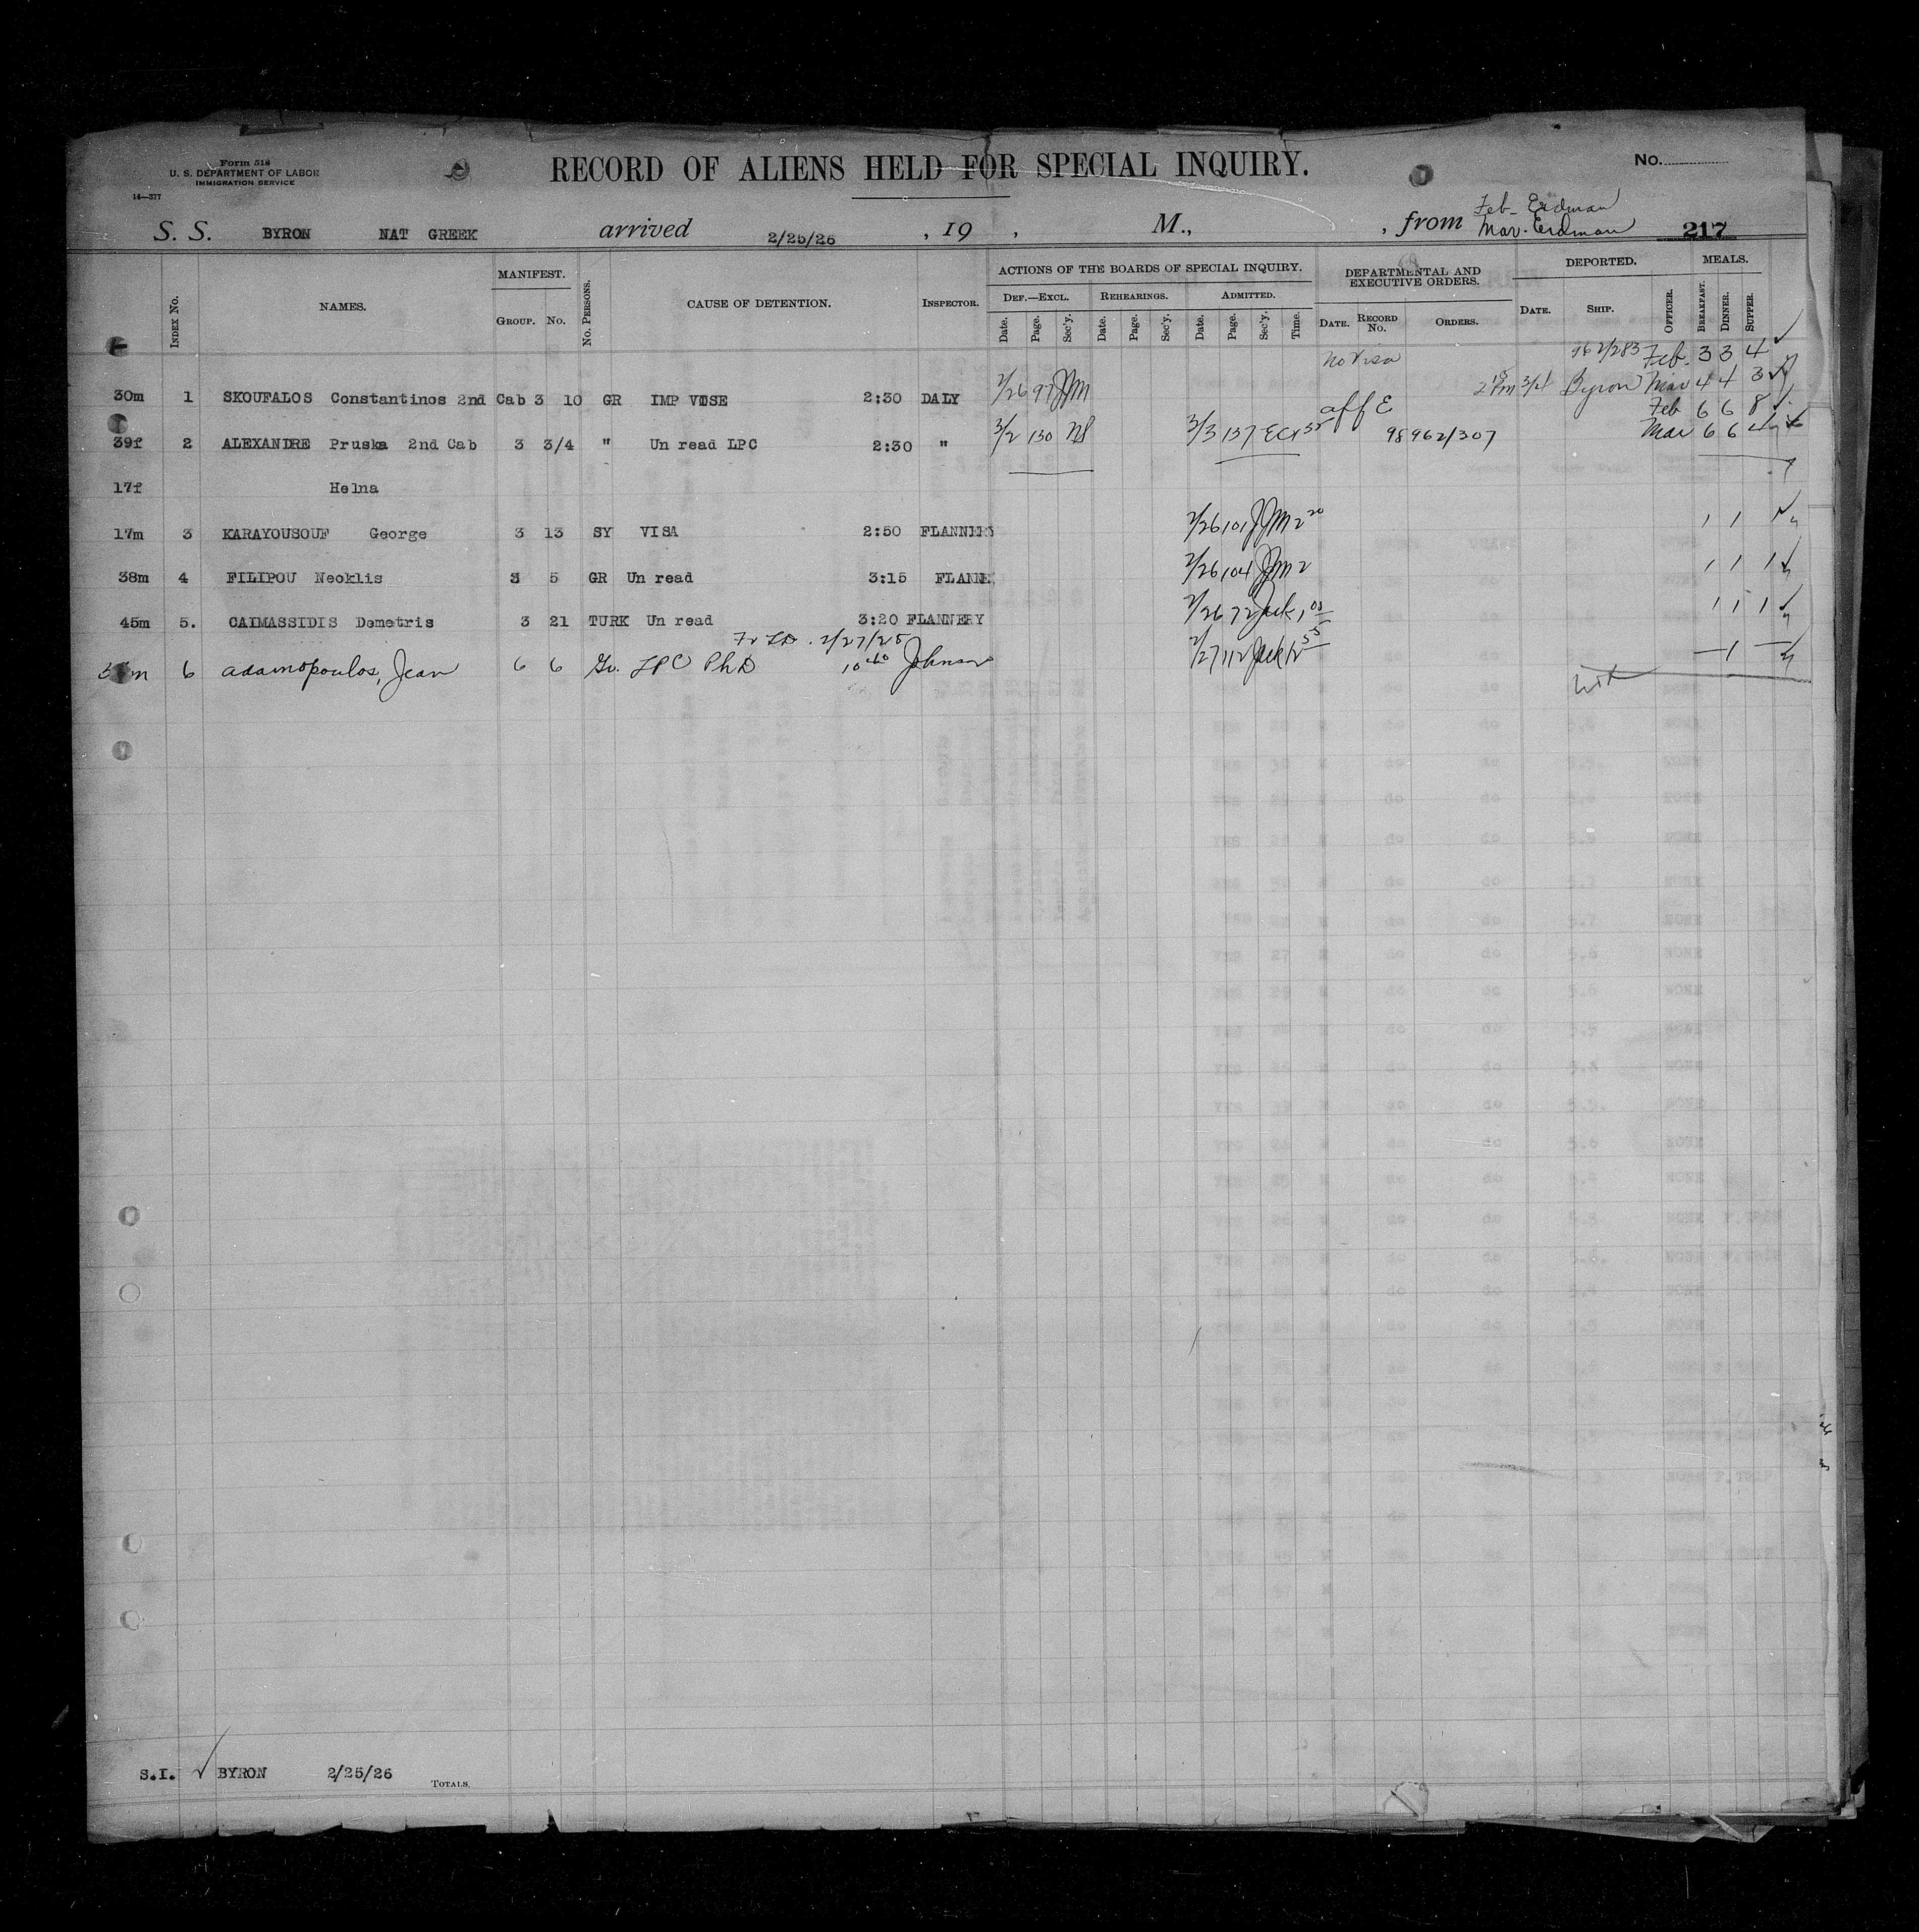 Form 518
U. S. DEPARTMENT OF LABOR
IMMIGRATION SERVICE
14—377
RECORD OF ALIENS HELD FOR SPECIAL INQUIRY.
No.
S. S. BYRON NAT GREEK arrived 2/25/26 , 19 , M., , from Feb- Erdman
Mar. Erdman 217
INDEX No. NAMES. MANIFEST. GROUP. No. No. PERSONS. CAUSE OF DETENTION. INSPECTOR.
ACTIONS OF THE BOARDS OF SPECIAL INQUIRY.
DEF.—EXCL. REHEARINGS. ADMITTED.
Date. Page. Sec'y. Date. Page. Sec'y. Date. Page. Sec'y. Time.
DEPARTMENTAL AND EXECUTIVE ORDERS.
DATE. RECORD No. ORDERS.
DEPORTED.
DATE. SHIP. OFFICER.
MEALS.
BREAKFAST. DINNER. SUPPER.
No Visa 962/283 Feb. 3 3 4
30m 1 SKOUFALOS Constantinos 2nd Cab 3 10 GR IMP VISE 2:30 DALY 2/26 97 JJM 3/4 Byron Mar 4 4 3
aff E Feb 6 6 8
39f 2 ALEXANDRE Pruska 2nd Cab 3 3/4 " Un read LPC 2:30 " 3/2 130 3/3 137 98962/307 Mar 6 6
17f Helna
17m 3 KARAYOUSOUF George 3 13 SY VISA 2:50 FLANNERY 2/26 101 JJM 2 20 1 1 1
38m 4 FILIPOU Neoklis 3 5 GR Un read 3:15 FLANNE 2/26 104 JJM 2 1 1 1
45m 5. CAIMASSIDIS Demetris 3 21 TURK Un read 3:20 FLANNERY 2/26 72 Jack 1 1 1
2/27/26
m 6 Adamopoulos, Jean 6 6 Gr. LPC PhD 10 40 Johnson 2/27 112 Jack 12 55 — 1 —
S.I. BYRON 2/25/26 TOTALS.